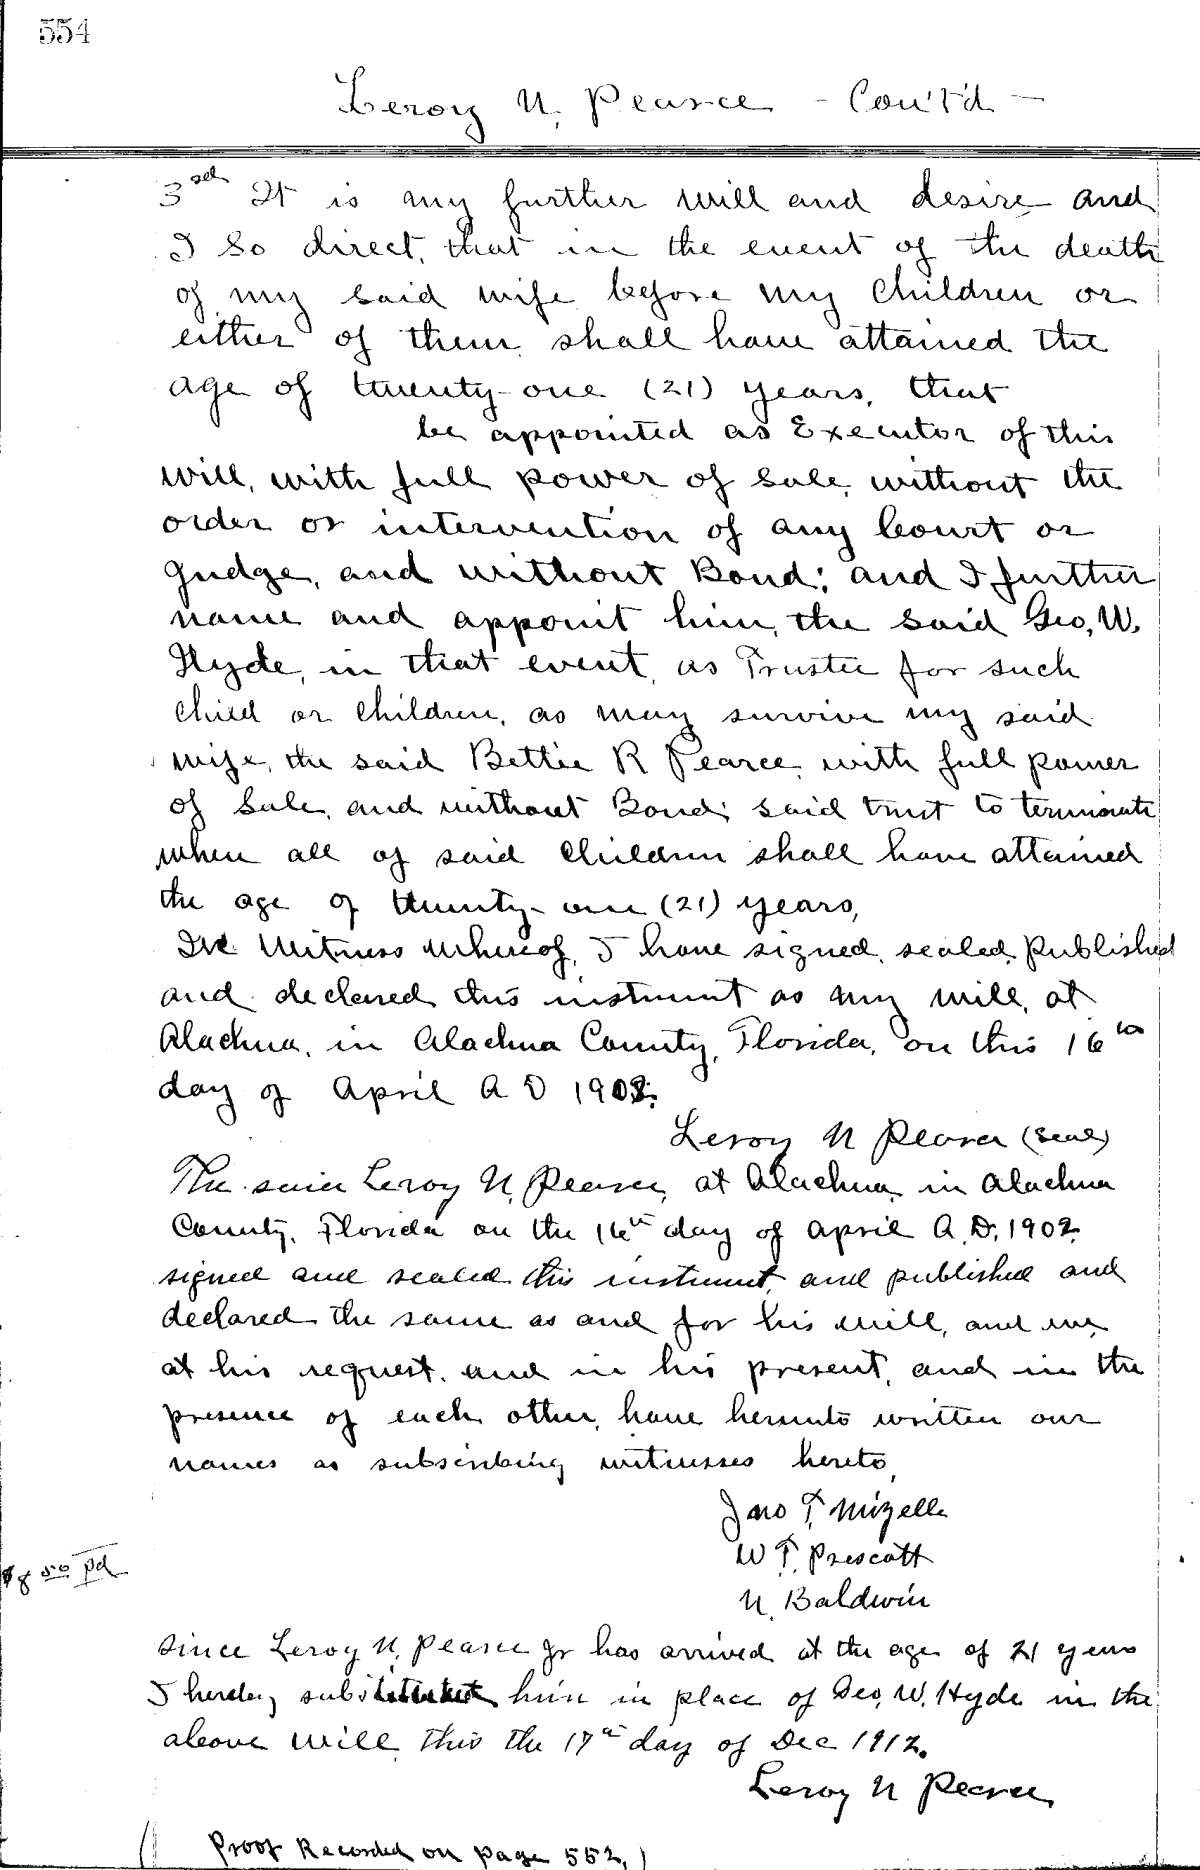 554
Leroy N. Pearce - Cont'd -
3rd It is my further will and desire and
I So direct, that in the event of the death
of my said wife before my Children or
either of them shall have attained the
age of twenty-one (21) years, that
be appointed as Executor of this
will, with full power of sale, without the
order or intervention of any Court or
Judge, and without Bond; and I further
name and appoint him, the said Geo, W.
Hyde, in that event, as Trustee for such
Child or Children, as may survive my said
wife, the said Bettie R Pearce, with full power
of Sale, and without Bond; said trust to terminate
when all of said Children shall have attained
the age of twenty-one (21) years,
In Witness Whereof, I have signed, sealed, published
and declared this instrument as my will, at
Alachua, in Alachua County, Florida, on this 16th
day of April A D 1902.
Leroy N Pearce (Seal)
The said Leroy N. Pearce, at Alachua, in Alachua
County, Florida on the 16th day of April A.D. 1902
signed and sealed this instrument, and published and
declared the same as and for his will, and we,
at his request, and in his present, and in the
presence of each other, have hereunto written our
names as subscribing witnesses hereto,
Jno T. Mizelle
W T. Prescott
N. Baldwin
$8 50 pd
Since Leroy N. Pearce Jr has arrived at the age of 21 years
I hereby substitute him in place of Geo, W. Hyde in the
above Will, this the 17th day of Dec 1912.
Leroy N Pearce
(Proof Recorded on page 552,)